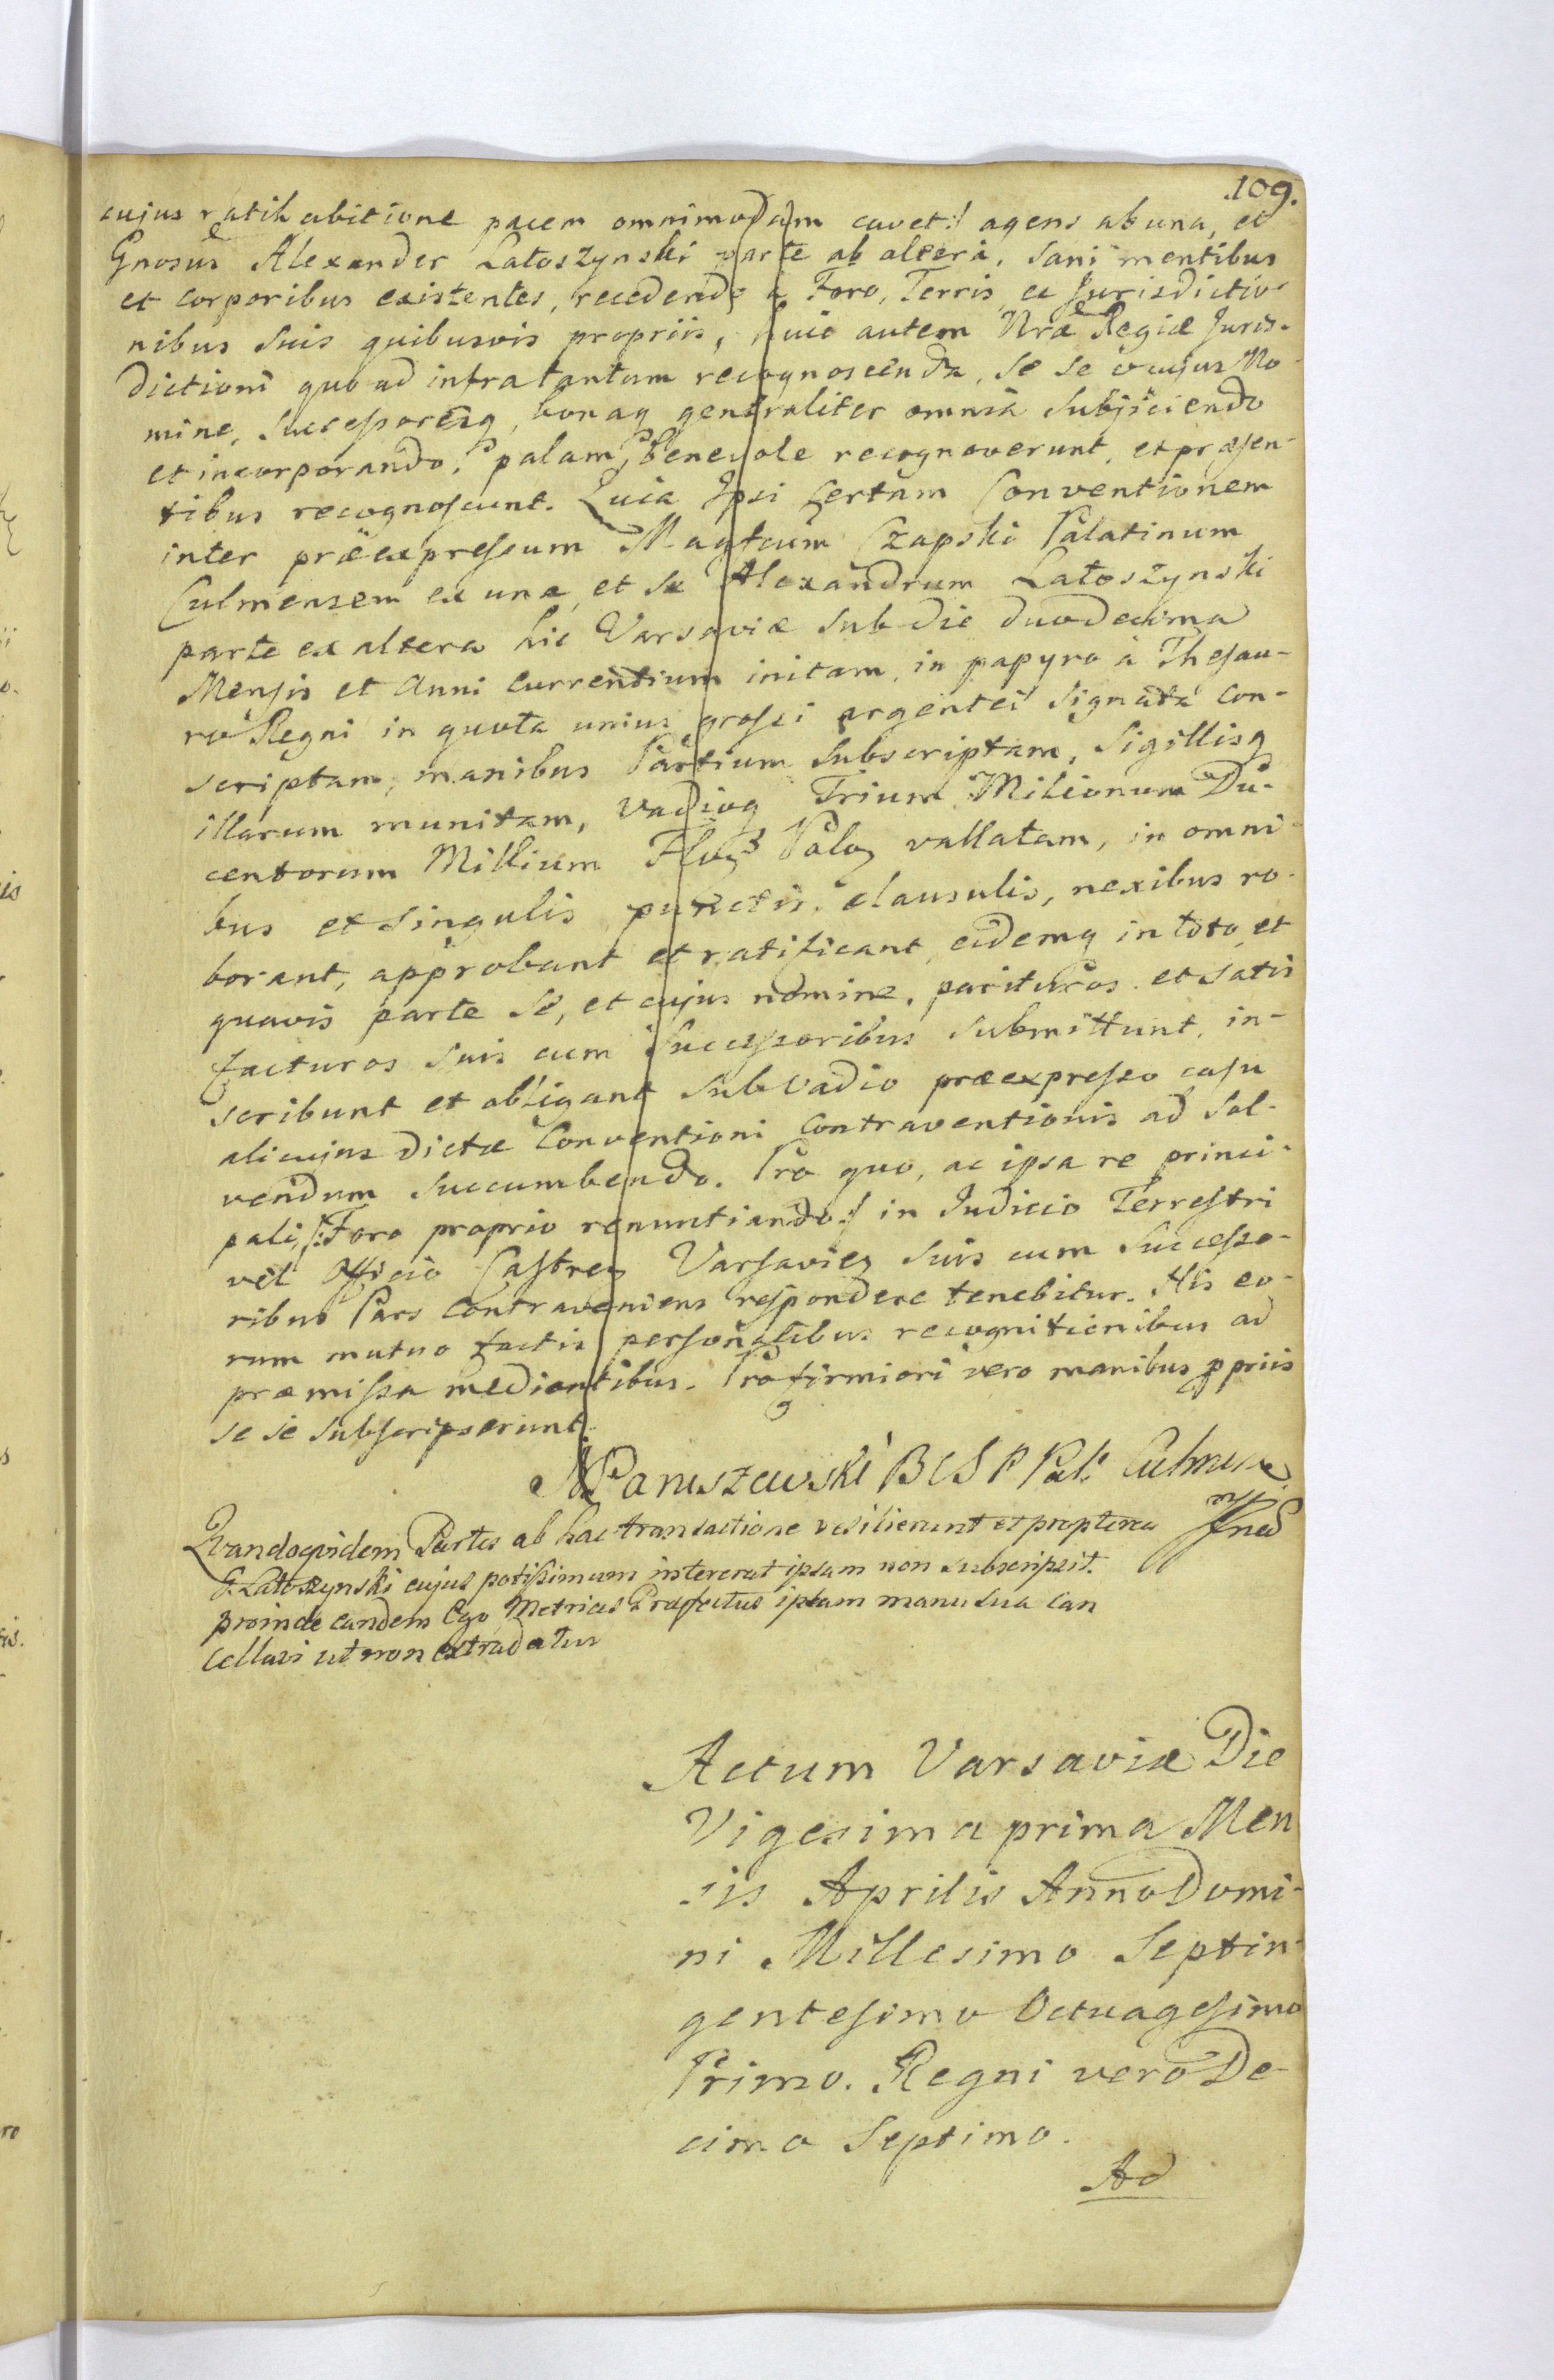 109.
cujus ratihabitione pacem omnimodam cavet :/ agens ab una, et
Gnosus Alexander Latoszynski parte ab altera, sani mentibus
et corporibus existentes, recedendo a Foro, Terris et Jurisdictio-
nibus suis quibusvis propriis, huic autem Nrae Regiae Juris-
dictioni quo ad infratantum recognoscenda, se se cujus No-
mine, successoresq, bonaq generaliter omnia subjiciendo
et incorporando, palam, benevole recognoverunt, et praesen-
tibus recognoscunt. Quia Ipsi certam Conventionem
inter praeexpressum Magfcum Czapski Palatinum
Culmensem ex una, et se Alexandrum Latoszynski
parte ex altera hic Varsaviae sub die duodecima
Mensis et Anni currentium initam, in papyro à Thesau-
ro Regni in quota unius grossi argentei signata con-
scriptam, manibus Partium subscriptam, Sigillisq
illarum munitam, vadioq Trium Milionum Du-
centorum Millium Flor Pol vallatam, in omni-
bus et singulis punctis, clausulis, nexibus ro-
borant, approbant et ratificant, eidemq in toto, et
quavis parte se, et cujus nomine, parituros et satis
facturos suis cum successoribus submittunt, in-
scribunt et obligant sub vadio praeexpresso casu
alicujus dictae Conventioni contraventionis ad sol-
vendum succumbendo. Pro quo, ac ipsa re princi-
pali, /: Foro proprio renuntiando :/ in Judicio Terrestri
vel Officio Castren Varsavien suis cum successo-
ribus Pars contraveniens respondere tenebitur. His eo-
rum mutuo factis personalibus recognitionibus ad
praemissa mediantibus. Pro firmiori vero manibus ppriis
se se subscripserunt.
Paruszewski B C S P Pal. Culmen
mp.
Quandoquidem Partes ab hac transactione resilierunt et propterea
G. Latoszynski cujus potissimum intererat ipsam non subscripsit.
proinde eandem Ego Metrices Praefectus ipsam manu sua can
cellavi ut non extradatur
Actum Varsaviae Die
Vigesima prima Men
sis Aprilis Anno Domi-
ni Millesimo Septin-
gentesimo Octuagesimo
Primo. Regni vero De-
cimo Septimo.
Ad